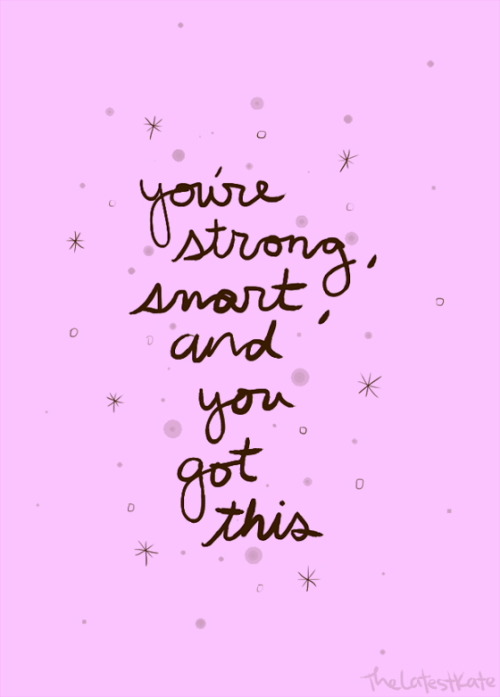 you're
strong,
smart,
and
you
got
this
TheLatestKate